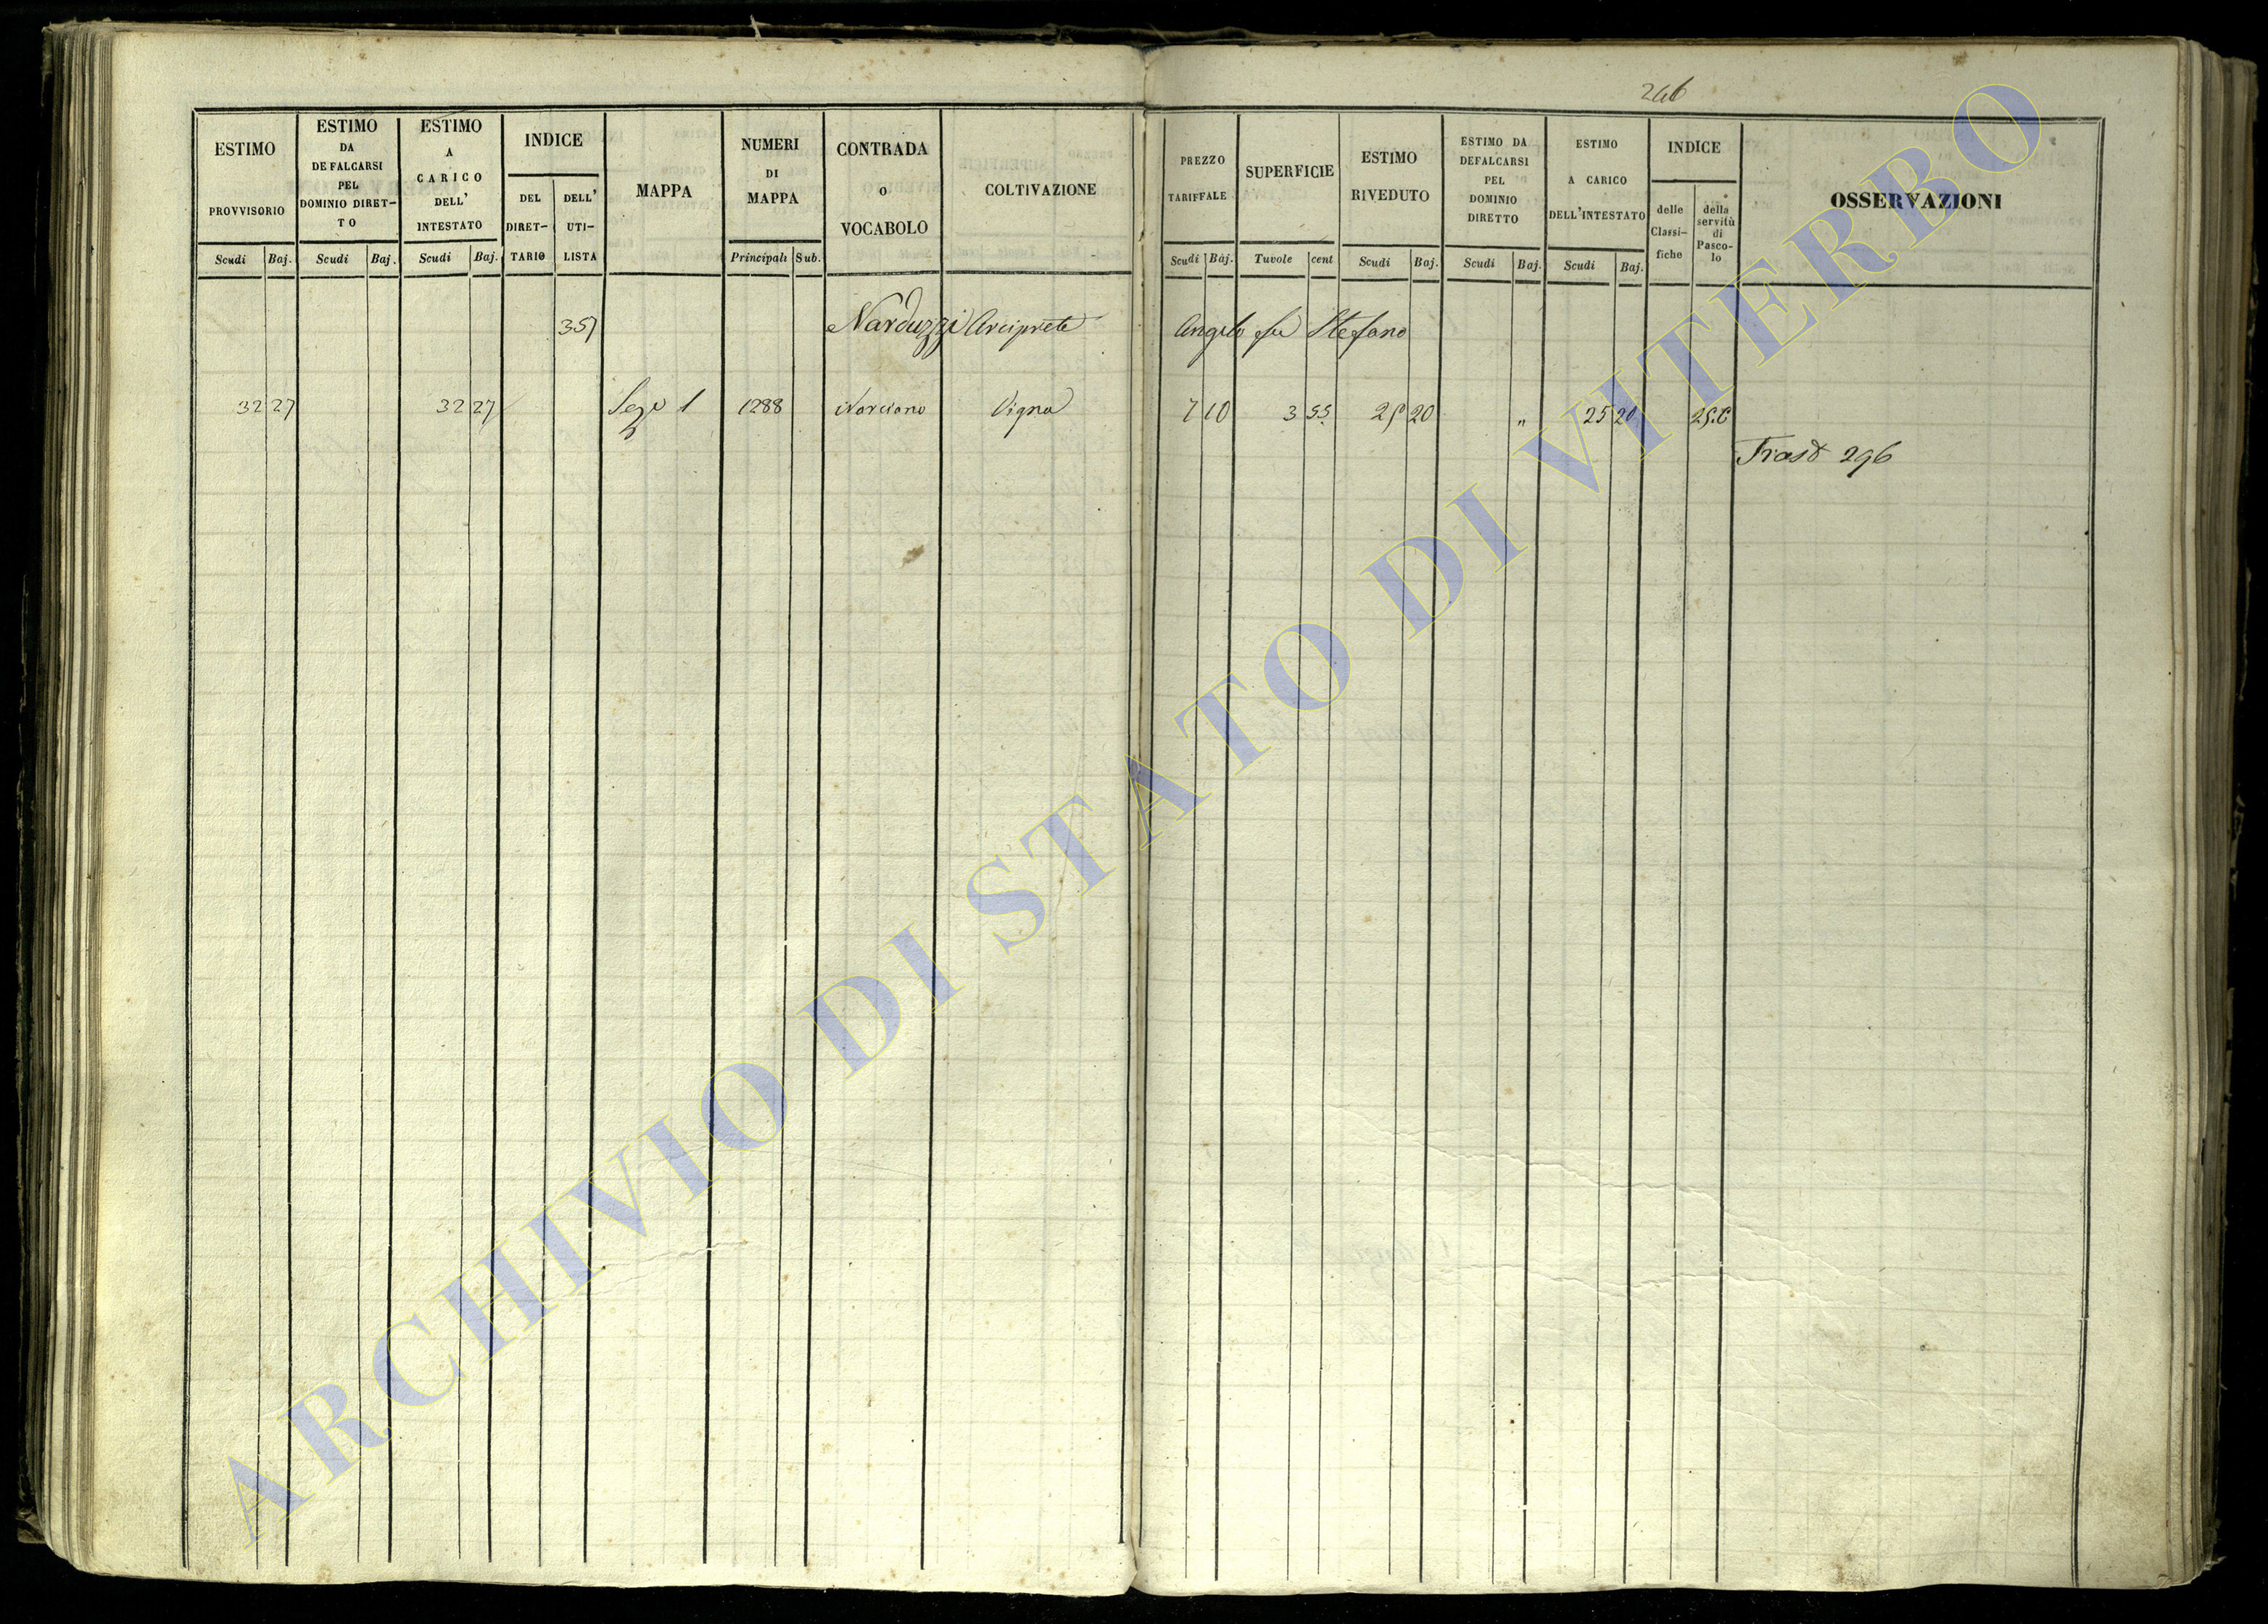 246
ESTIMO PROVVISORIO
ESTIMO DA DEFALCARSI PEL DOMINIO DIRET-TO
ESTIMO A CARICO DELL' INTESTATO
INDICE
DEL DIRET-TARIO
DELL' UTI-LISTA
MAPPA
NUMERI DI MAPPA
CONTRADA O VOCABOLO
COLTIVAZIONE
PREZZO TARIFFALE
SUPERFICIE
ESTIMO RIVEDUTO
ESTIMO DA DEFALCARSI PEL DOMINIO DIRETTO
ESTIMO A CARICO DELL'INTESTATO
INDICE
delle Classi-fiche
della servitù di Pasco-lo
OSSERVAZIONI
Scudi Baj. Scudi Baj. Scudi Baj. Principali Sub. Scudi Baj. Tavole cent Scudi Baj. Scudi Baj. Scudi Baj.
357 Narduzzi Arciprete Angelo fu Stefano
32 27 32 27 Sez. 1 1288 Norciano Vigna 7 10 3 55 25 20 " 25 20
Trasd 296
ARCHIVIO DI STATO DI VITERBO